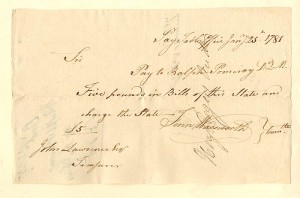 Pay Table Office Jany 25th 1781
Sir
Pay to Ralph Pomeroy
Five pounds in Bills of this State and
charge the State
£5
Fenn Wadsworth
Comtte
John Lawrence Esqr
Treasurer